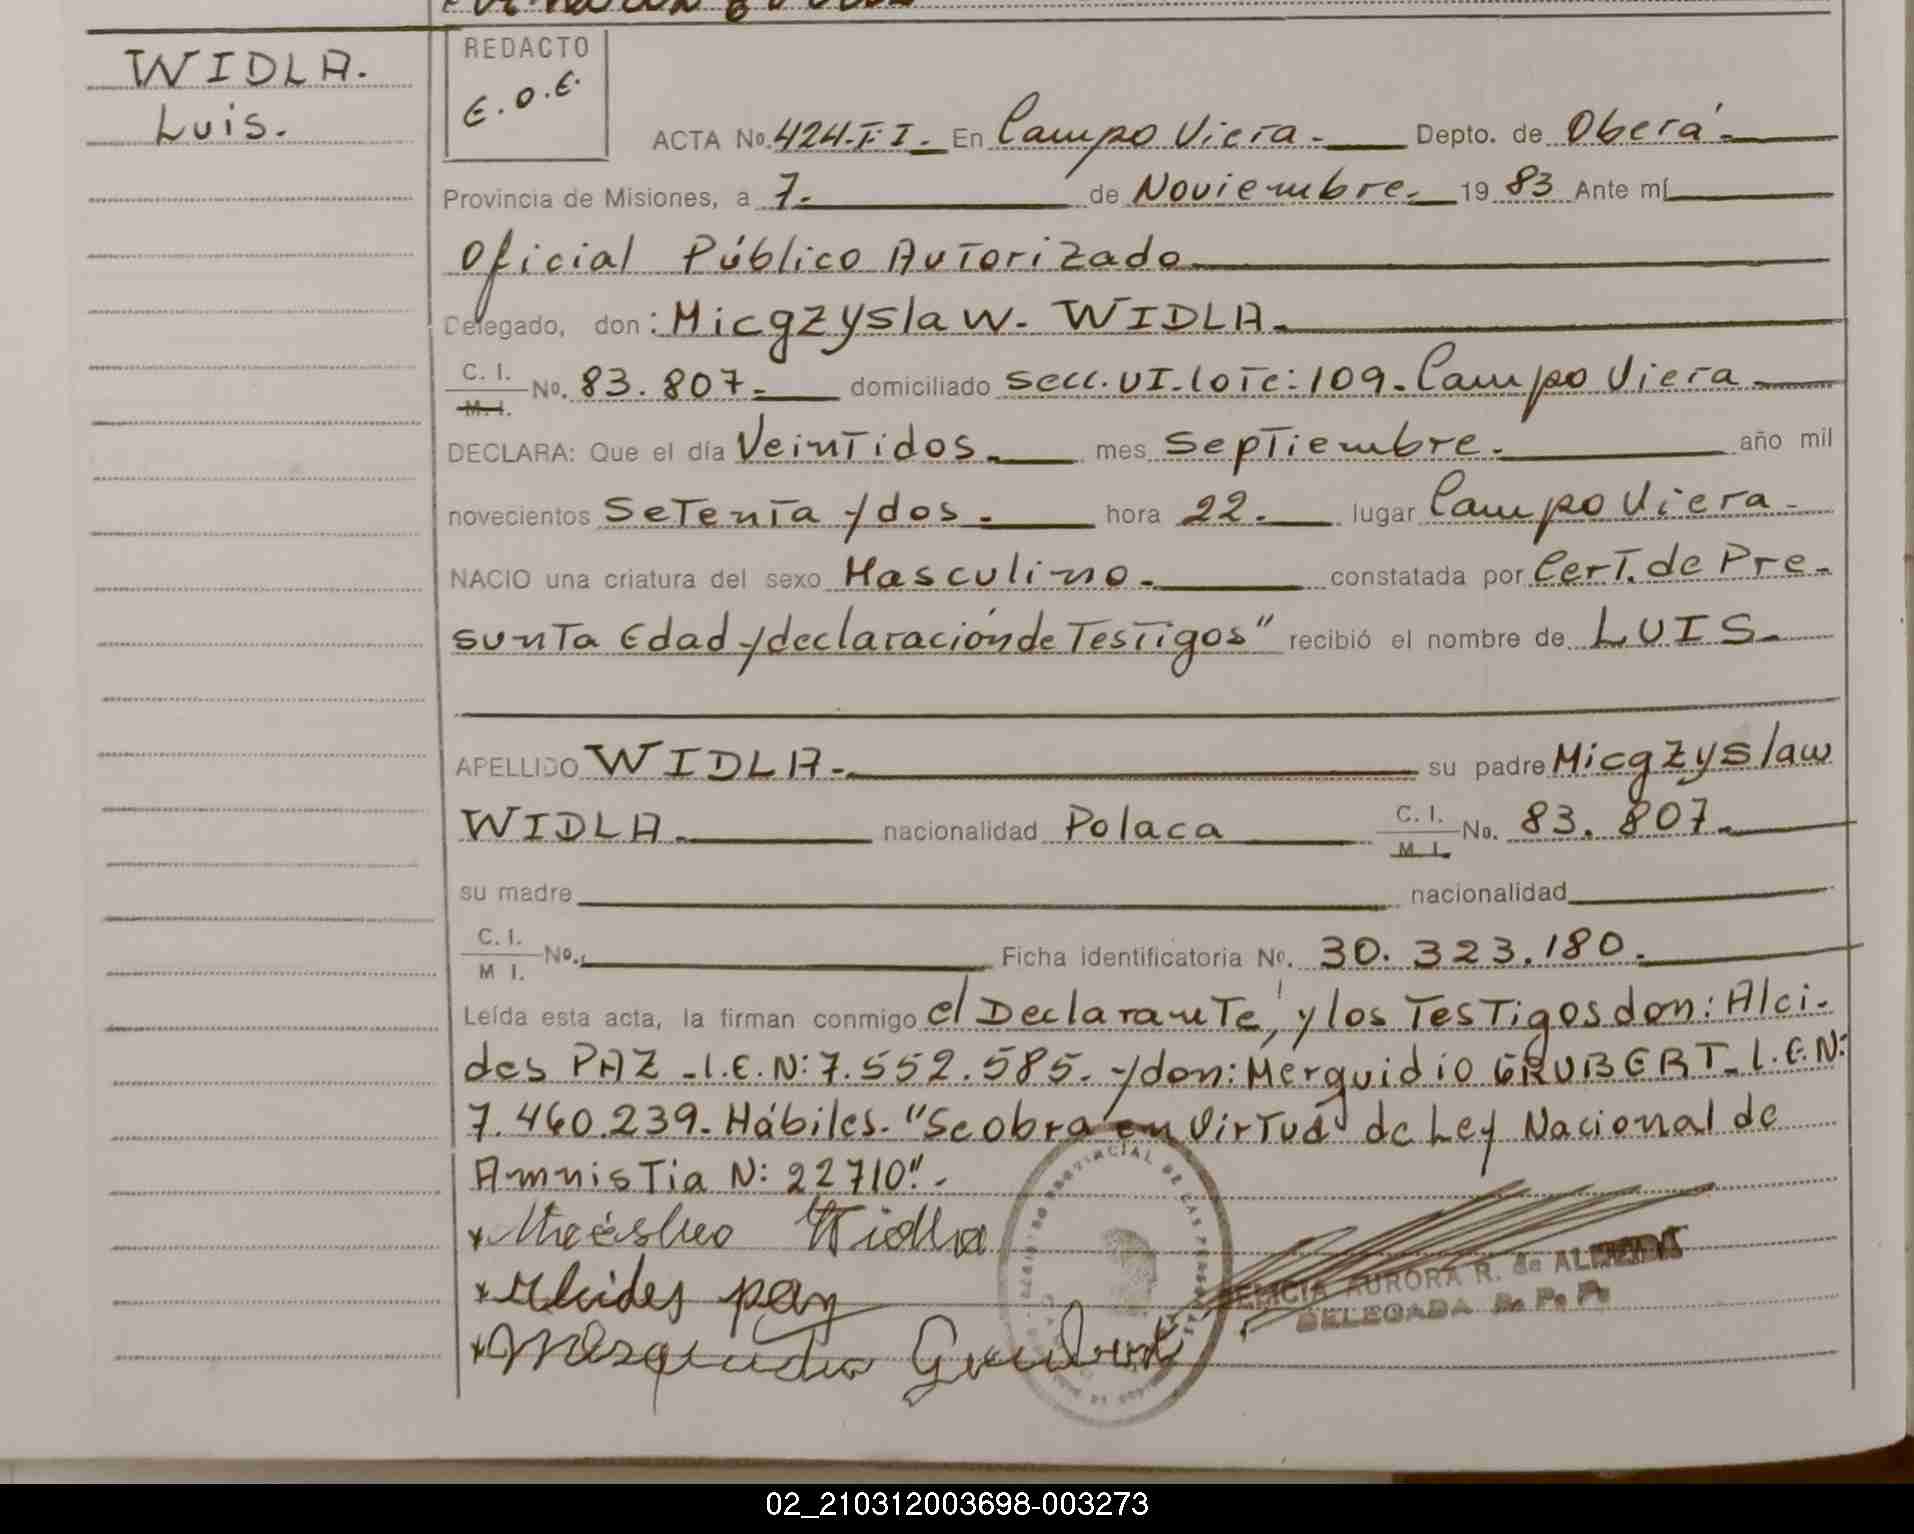 WIDLA.
Luis.
REDACTO
E.O.E.
ACTA No. 424-T-I. En Campo Viera.- Depto. de Oberá.-
Provincia de Misiones, a 7. de Noviembre. 19 83 Ante mí
Oficial Público Autorizado
Delegado, don: Micgzyslaw. WIDLA.
C. I.
M. I. No. 83.807. domiciliado secc. VI-lote: 109. Campo Viera
DECLARA: Que el día Veintidos. mes Septiembre. año mil
novecientos Setenta y dos. hora 22. lugar Campo Viera.
NACIO una criatura del sexo Masculino. constatada por Cert. de Pre-
sunta Edad y declaración de Testigos" recibió el nombre de LUIS.
APELLIDO WIDLA. su padre Micgzyslaw
WIDLA. nacionalidad Polaca C. I.
M. I. No. 83.807.
su madre nacionalidad
C. I.
M I. No. Ficha identificatoria No. 30.323.180.
Leída esta acta, la firman conmigo el Declarante, y los Testigos don: Alci-
des PAZ -L.E.N: 7.552.585.- y don: Merguidio GRUBERT- L.E.N:
7.460.239. Hábiles. "Se obra en Virtud de Ley Nacional de
Amnistia N: 22710".
Widla
Alcides paz
DELEGADA
AURORA R. de
02_210312003698-003273